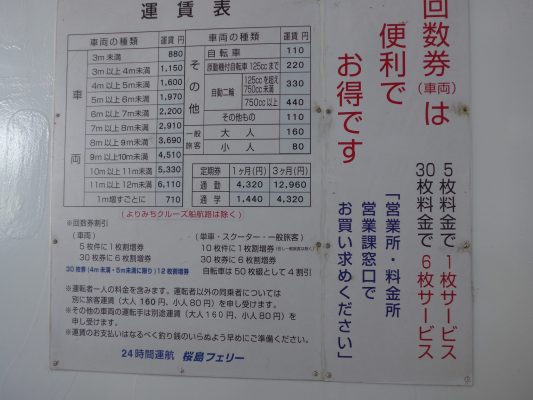 運賃表
車両の種類 運賃 円
車両
3m未満 880
3m以上4m未満 1,150
4m以上5m未満 1,600
5m以上6m未満 1,970
6m以上7m未満 2,200
7m以上8m未満 2,910
8m以上9m未満 3,690
9m以上10m未満 4,510
10m以上11m未満 5,330
11m以上12m未満 6,110
1m増すごとに 710
車両の種類 運賃 円
その他
自転車 110
原動機付自転車 125ccまで 220
自動二輪 125ccを超え750cc未満 330
750cc以上 440
その他もの 110
一般旅客 大人 160
小人 80
定期券 1ヶ月(円) 3ヶ月(円)
通勤 4,320 12,960
通学 1,440 4,320
(よりみちクルーズ船航路は除く)
※回数券割引
(車両)
5枚件に1枚割増券
30枚券に6枚割増券
30枚券(4m未満・5m未満に限り)12枚割増券
(単車・スクーター・一般旅客)
10枚件に1枚割増券
30枚券に6枚割増券
自転車は50枚綴として4割引
※運転者一人の料金を含みます。運転者以外の同乗者については
別に旅客運賃(大人160円、小人80円)を申し受けます。
※その他の車両の運転手は別途運賃(大人160円、小人80円)を
申し受けます。
※運賃のお支払いはなるべく釣り銭のいらぬよう早めにご準備ください。
24時間運航 桜島フェリー
回数券(車両)は
便利で
お得です
5枚料金で1枚サービス
30枚料金で6枚サービス
「営業所・料金所
営業課窓口で
お買い求めください」